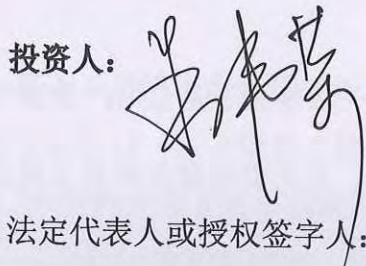 投资人：
法定代表人或授权签字人：